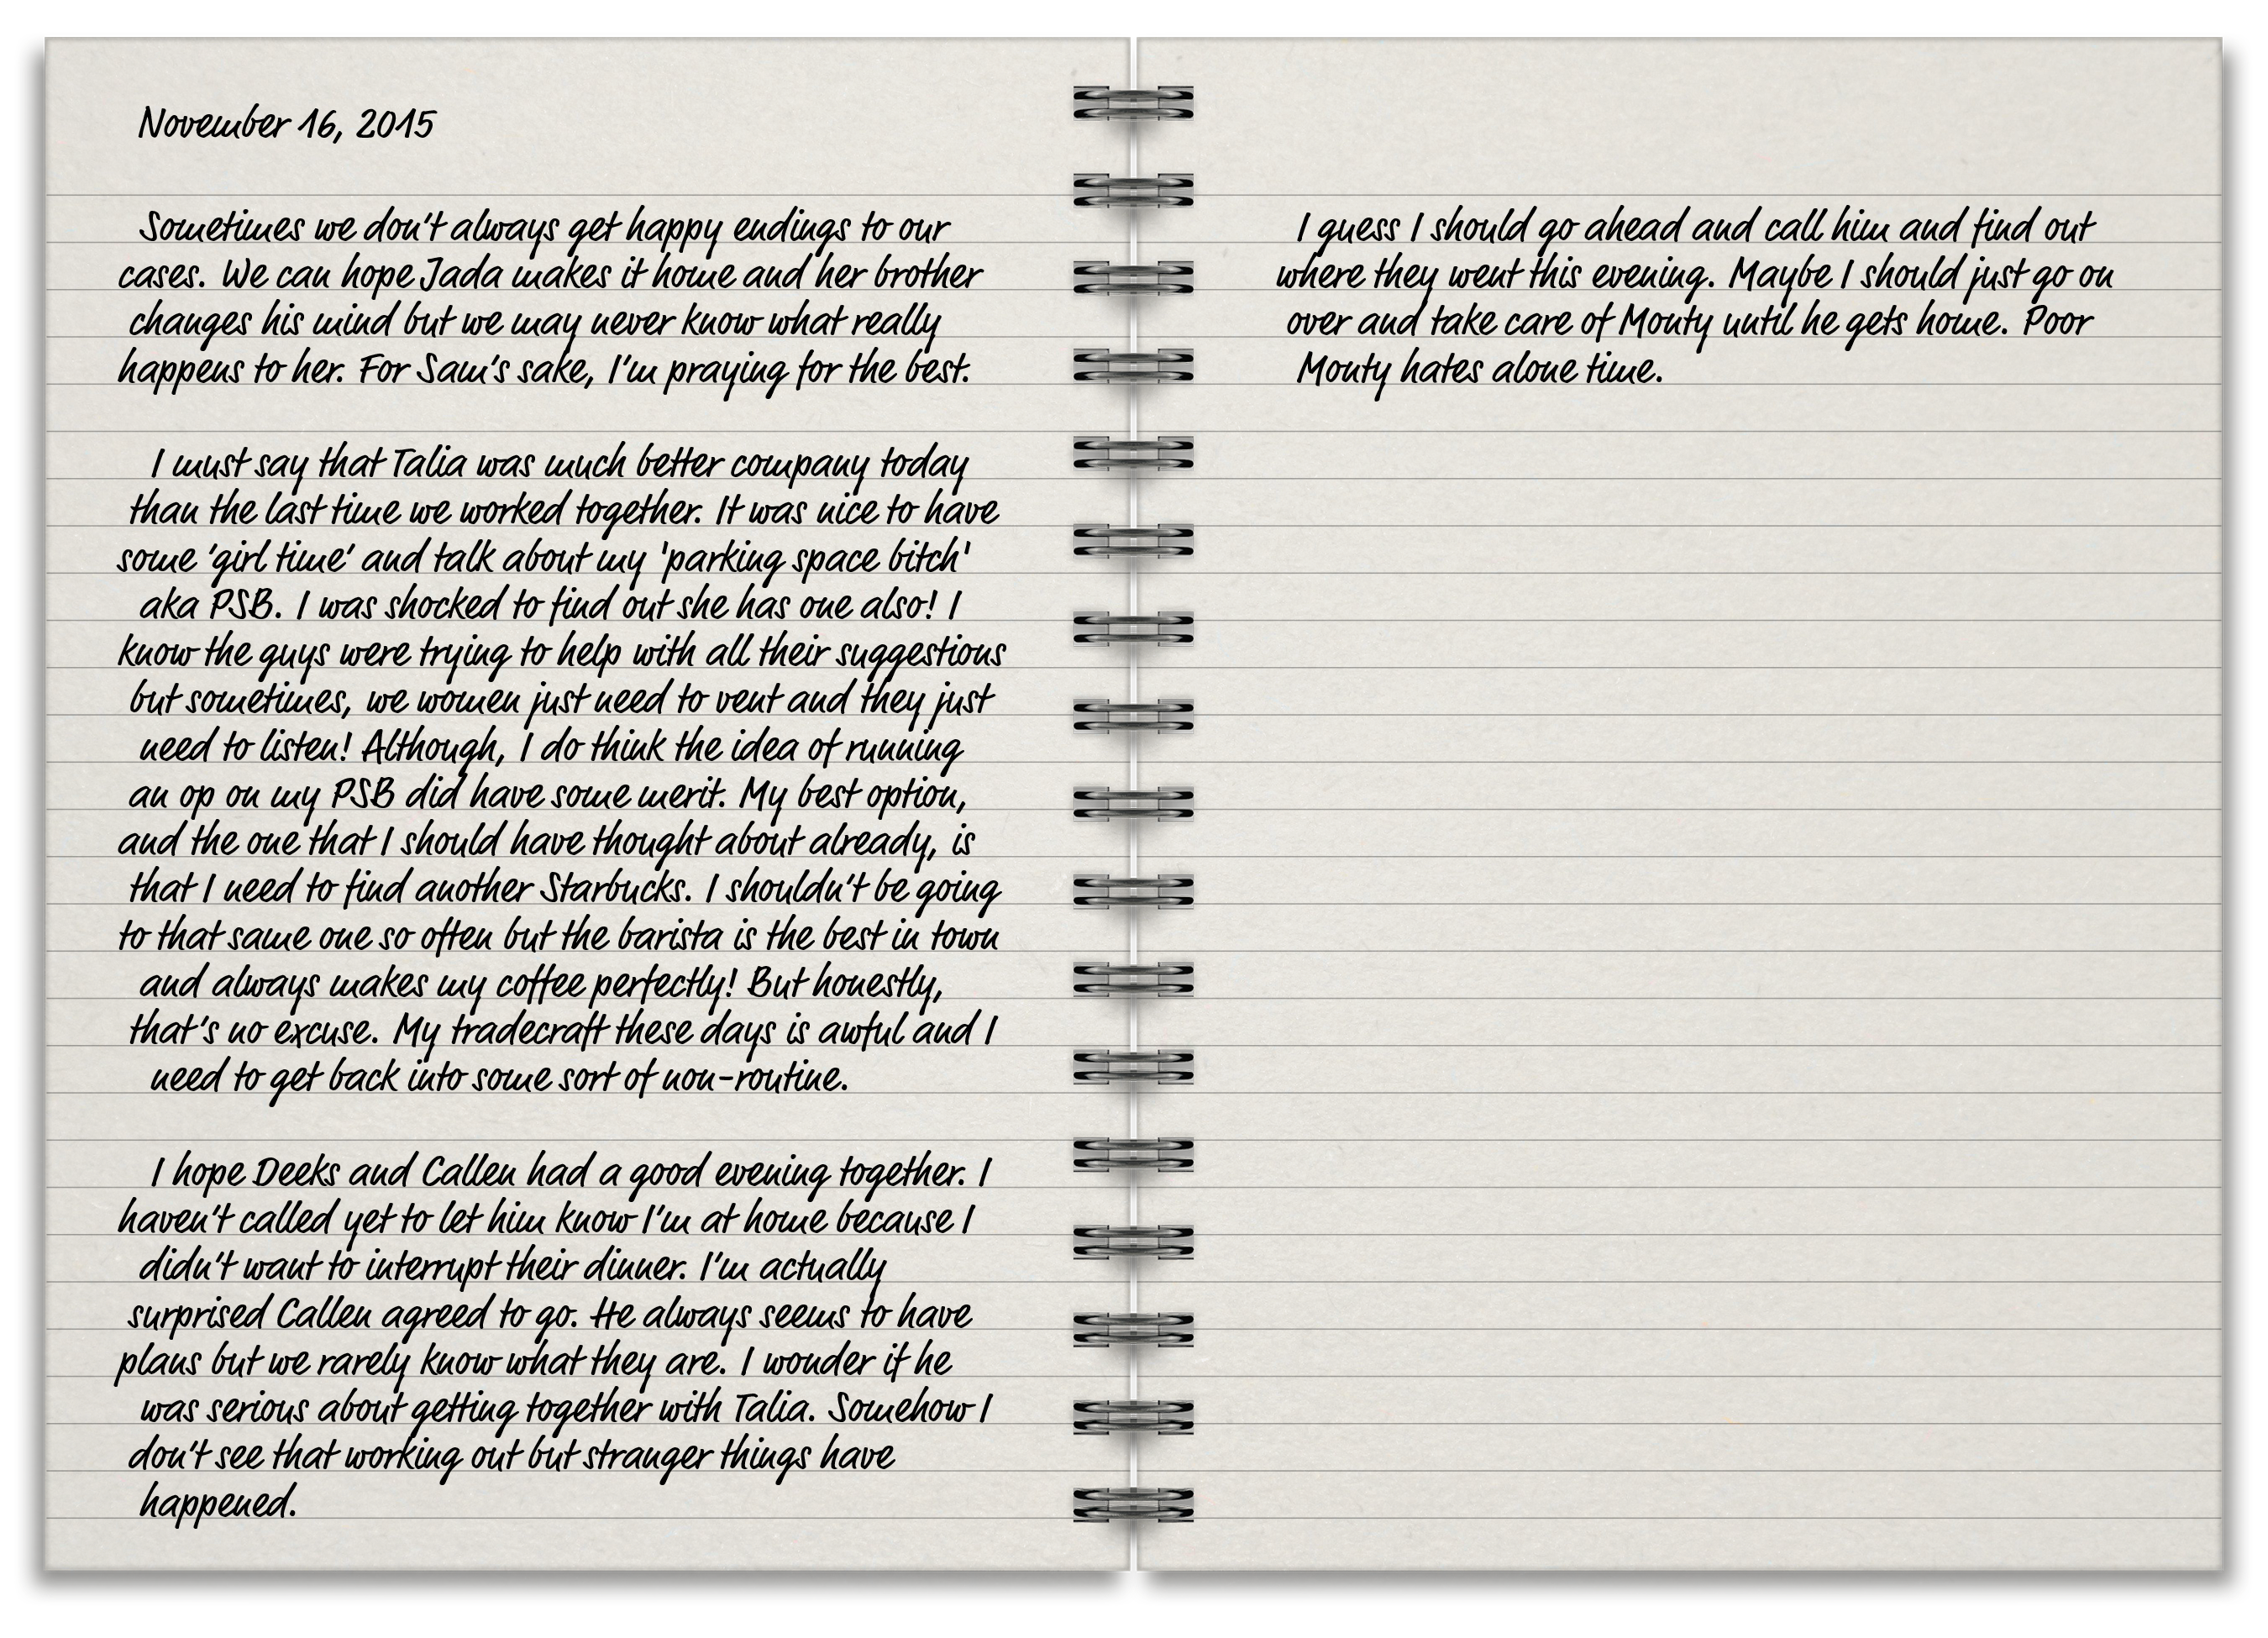 November 16, 2015
Sometimes we don't always get happy endings to our
cases. We can hope Jada makes it home and her brother
changes his mind but we may never know what really
happens to her. For Sam's sake, I'm praying for the best.
I must say that Talia was much better company today
than the last time we worked together. It was nice to have
some 'girl time' and talk about my 'parking space bitch'
aka PSB. I was shocked to find out she has one also! I
know the guys were trying to help with all their suggestions
but sometimes, we women just need to vent and they just
need to listen! Although, I do think the idea of running
an op on my PSB did have some merit. My best option,
and the one that I should have thought about already, is
that I need to find another Starbucks. I shouldn't be going
to that same one so often but the barista is the best in town
and always makes my coffee perfectly! But honestly,
that's no excuse. My tradecraft these days is awful and I
need to get back into some sort of non-routine.
I hope Deeks and Callen had a good evening together. I
haven't called yet to let him know I'm at home because I
didn't want to interrupt their dinner. I'm actually
surprised Callen agreed to go. He always seems to have
plans but we rarely know what they are. I wonder if he
was serious about getting together with Talia. Somehow I
don't see that working out but stranger things have
happened.
I guess I should go ahead and call him and find out
where they went this evening. Maybe I should just go on
over and take care of Monty until he gets home. Poor
Monty hates alone time.